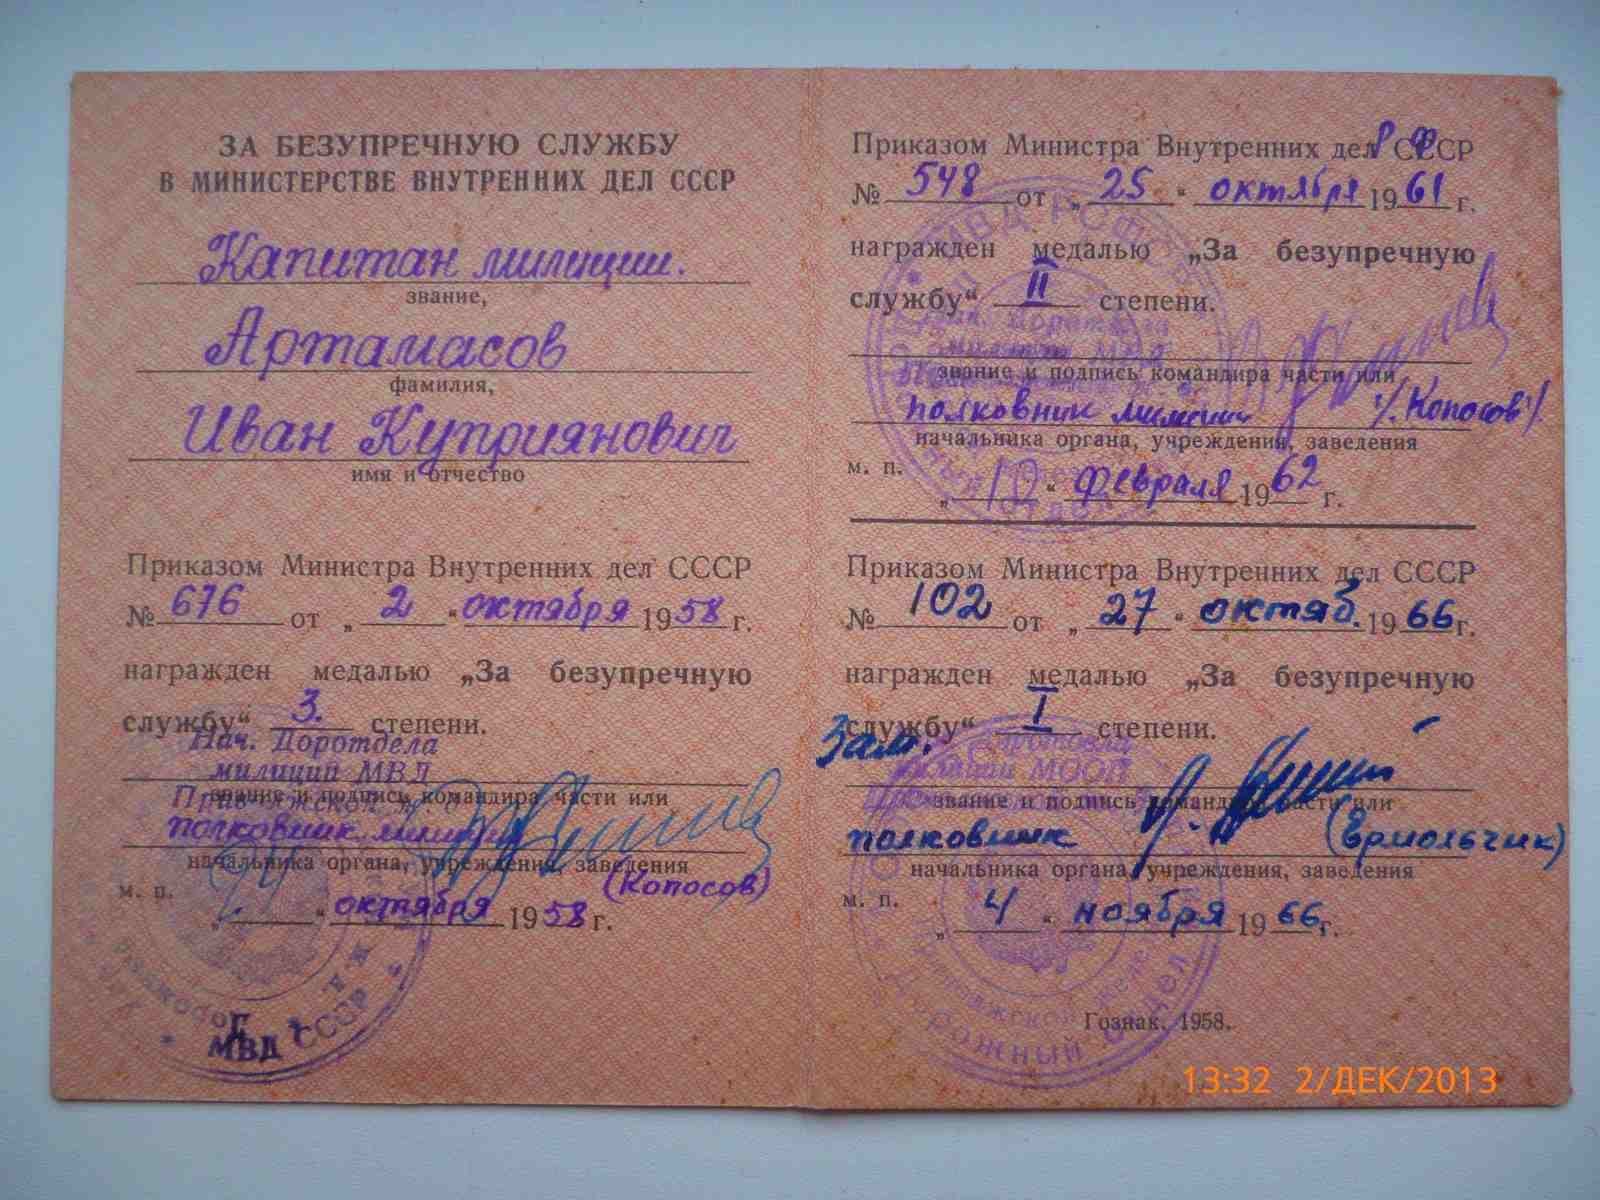 ЗА БЕЗУПРЕЧНУЮ СЛУЖБУ
В МИНИСТЕРСТВЕ ВНУТРЕННИХ ДЕЛ СССР
Капитан милиции.
звание,
Артамасов
фамилия,
Иван Куприянович
имя и отчество
Приказом Министра Внутренних дел СССР
№ 676 от „ 2 “ октября 1958 г.
награжден медалью „За безупречную
службу“ 3. степени.
Нач. Доротдела
милиции МВД
звание и подпись командира части или
полковник милиции
начальника органа, учреждения, заведения
(Копосов)
м. п.
октября 1958 г.
МВД СССР
Приказом Министра Внутренних дел
№ 548 от „ 25 “ октября 1961 г.
награжден медалью „За безупречную
службу“ II степени.
звание и подпись командира части или
полковник милиции /Копосов/.
начальника органа, учреждения, заведения
м. п.
„ 10 “ февраля 1962 г.
Приказом Министра Внутренних дел СССР
№ 102 от „ 27 “ октяб. 1966 г.
награжден медалью „За безупречную
службу“ I степени.
Зам.
милиции МООП
звание и подпись командира части или
полковник (Ермольчик)
начальника органа, учреждения, заведения
м. п.
„ 4 “ ноября 1966 г.
Дорожный отдел
Гознак. 1958.
13:32 2/ДЕК/2013